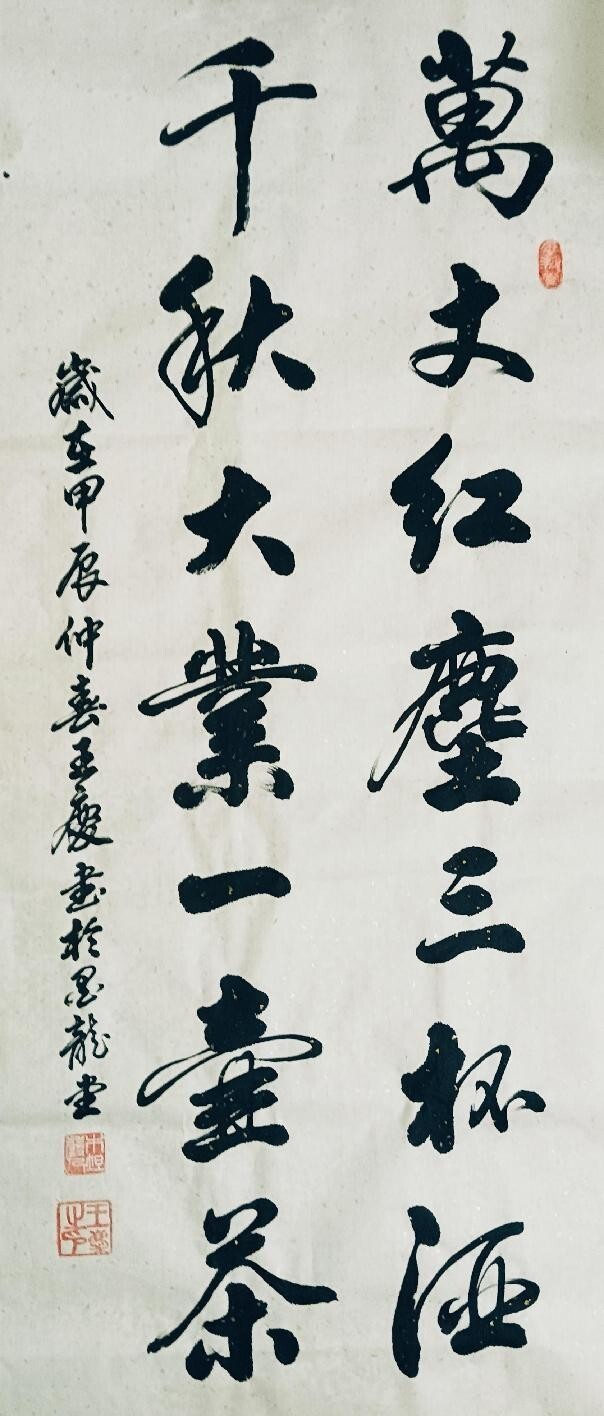 萬丈紅塵三杯酒
千秋大業一壺茶
歲在甲辰仲春王慶書於墨龍堂